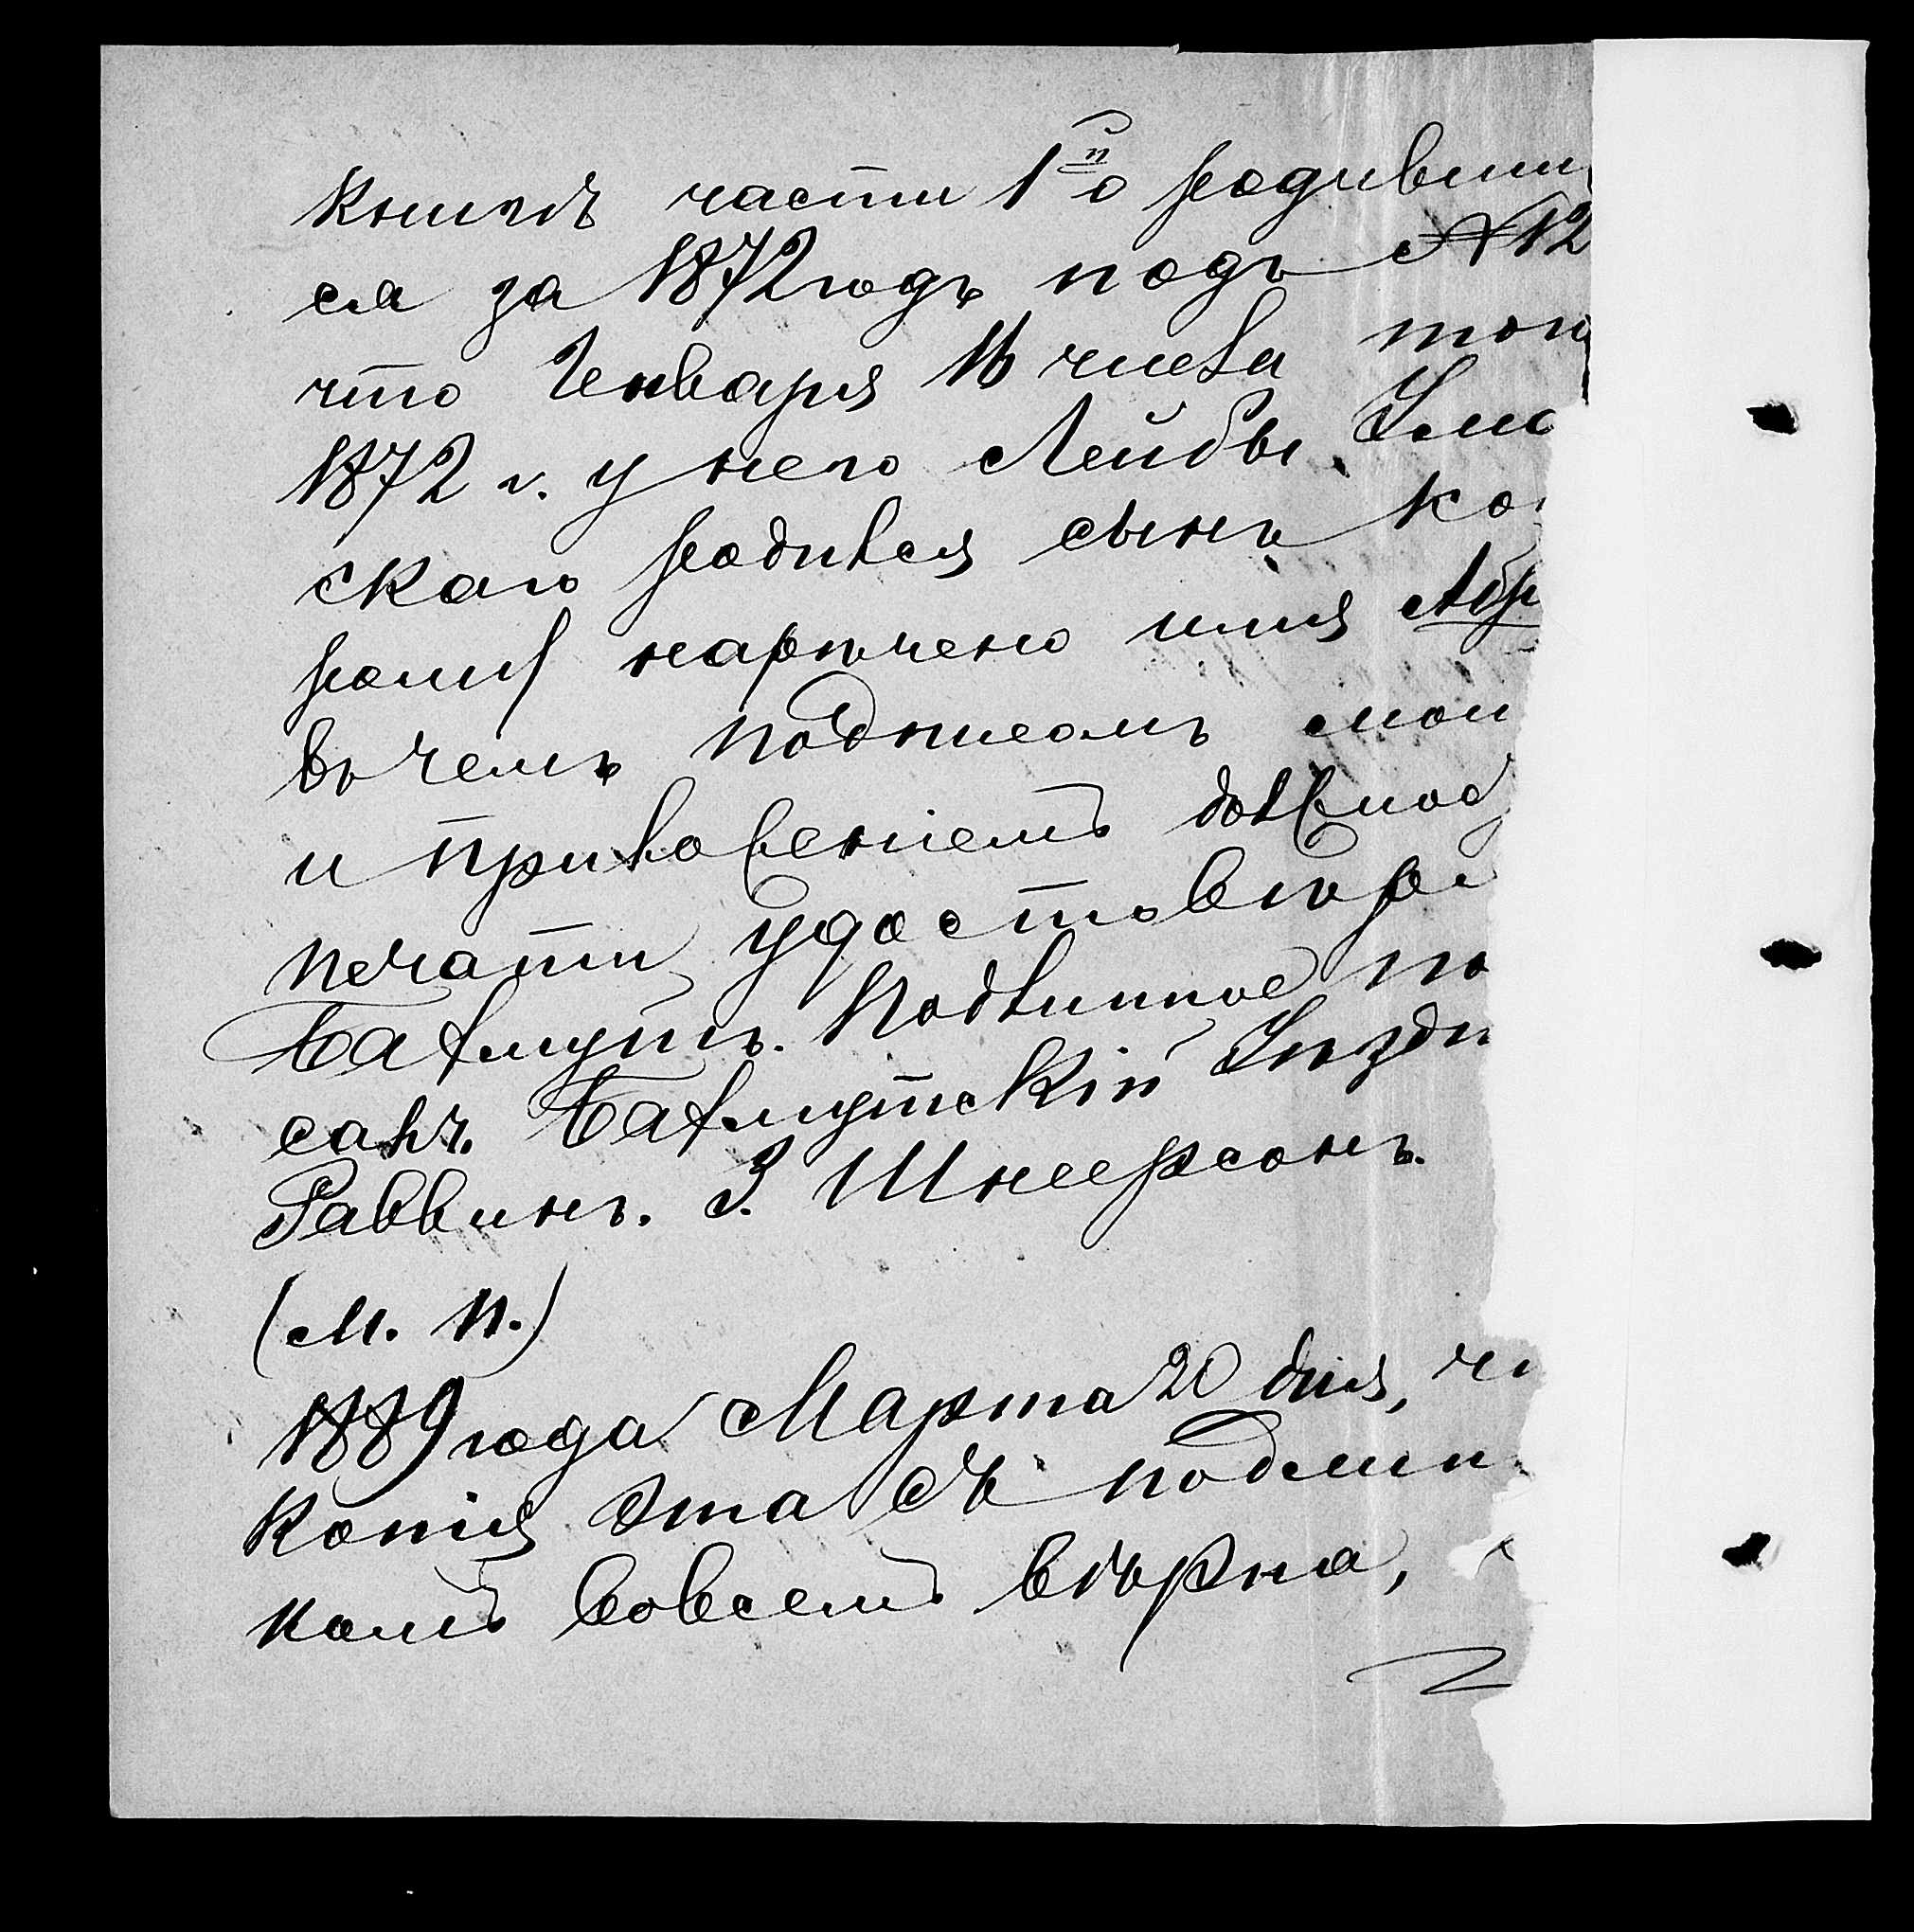 книгѣ части 1й о родивши
ся за 1872 годъ подъ №12
что Генваря 16 числа того
1872 г. у него Лейбы Ума
скаго родился сынъ ко
рому нарѣчено имя Абр
въ чемъ подписомъ мои
и приложеніемъ должно
печати удостовѣря
Бахмутъ. Подлинное по
салъ. Бахмутскій Уѣздн
Раввинъ. З. Шнеерсонъ.
(М. П.)
1889 года Марта 20 дня,
копія эта съ подлин
комъ вовсемъ вѣрна,